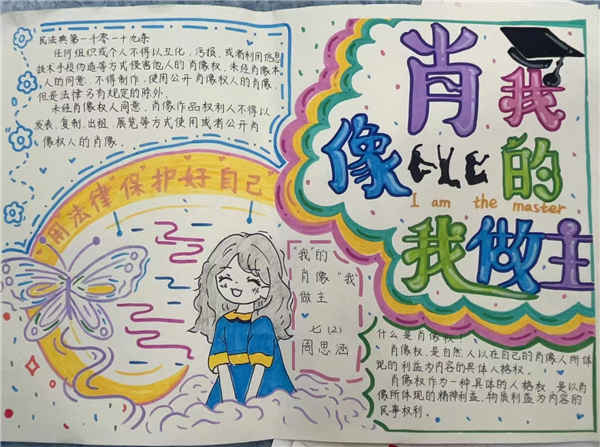 民法典第一千零一十九条
任何组织或个人不得以丑化、污损,或者利用信息
技术手段伪造等方式侵害他人的肖像权,未经肖像本
人的同意.不得制作、使用公开肖像权人的肖像,
但是法律另有规定的除外.
未经肖像权人同意,肖像作品权利人不得以
发表.复制.出租.展览等方式使用或者公开肖
像权人的肖像.
"用法律"保"护好自己"
肖我
像的
I am the master
我做主
"我"的
肖像"我"
做主
七(2)
周思涵
什么是肖像权?
肖像权,是自然人以在自己的肖像人所体
现的利益为内容的具体人格权.
肖像权作为一种具体的人格权,是以肖
像所体现的精神利益.物质利益为内容的
民事权利.